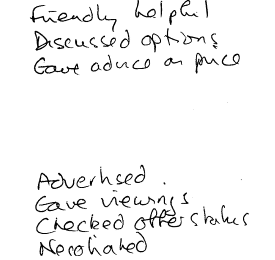 Friendly helpful
Discussed options
Gave advice on price
Advertised.
Gave viewings
Checked offer status
Negotiated